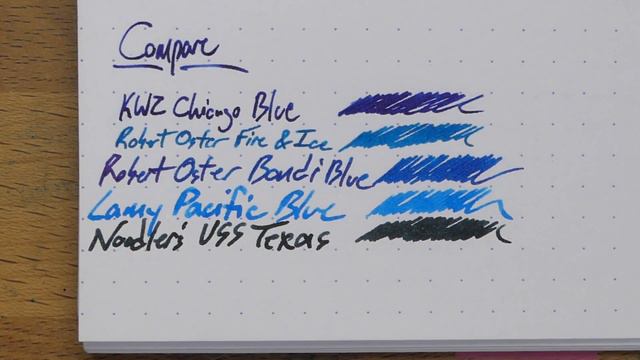 Compare
KWZ Chicago Blue
Robert Oster Fire & Ice
Robert Oster Bondi Blue
Lamy Pacific Blue
Noodler's USS Texas